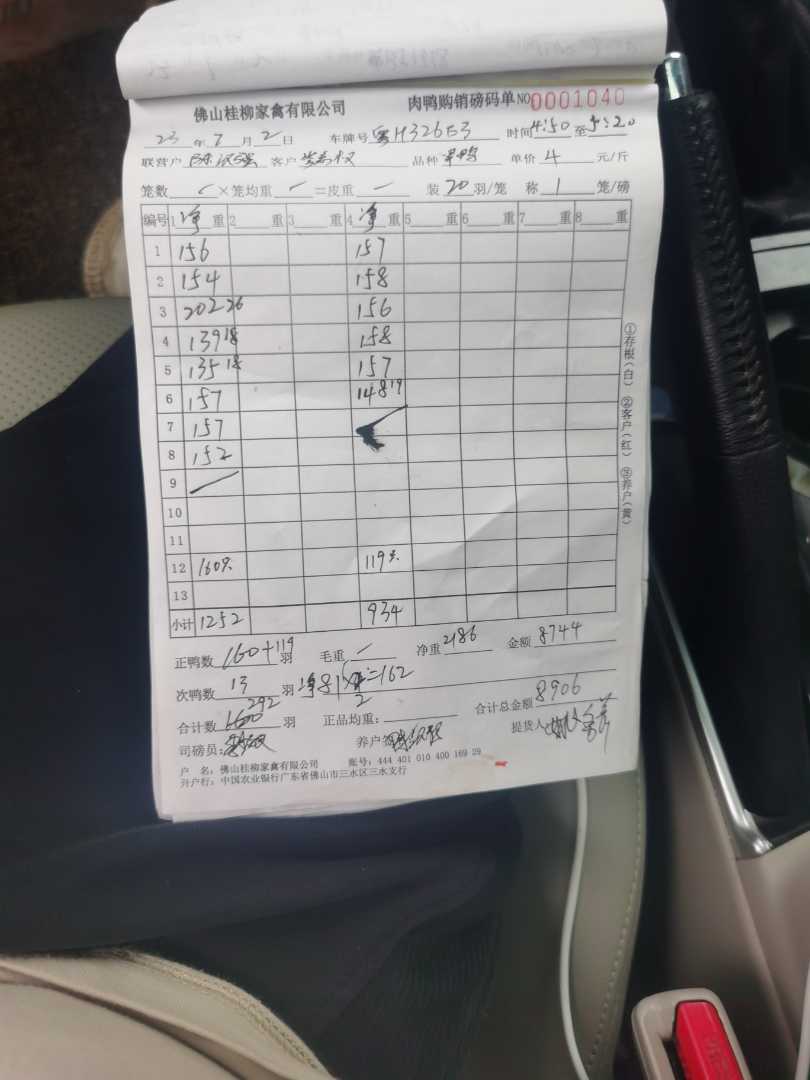 佛山桂柳家禽有限公司 肉鸭购销磅码单 NO0001040
23年7月2日 车牌号 粤H32653 时间4:50至5:20
联营户 客户 品种 单价 4 元/斤
笼数 ×笼均重 =皮重 装20羽/笼 称 1 笼/磅
编号 1净重 2 重 3 重 4净重 5 重 6 重 7 重 8 重
1 156 157
2 154 158
3 202 26 156
4 139 18 158
5 135 18 157
6 157 148 19
7 157
8 152
9
10
11
12 160只 119只
13
小计 1252 934
正鸭数 160+119 羽 毛重 净重 2186 金额 8744
次鸭数 13 羽 净81×2=162
合计数 292 羽 正品均重: 合计总金额 8906
司磅员: 养户 提货人
户 名:佛山桂柳家禽有限公司 账号:444 401 010 400 169 29
开户行:中国农业银行广东省佛山市三水区三水支行
①存根(白) ②客户(红) ③养户(黄)